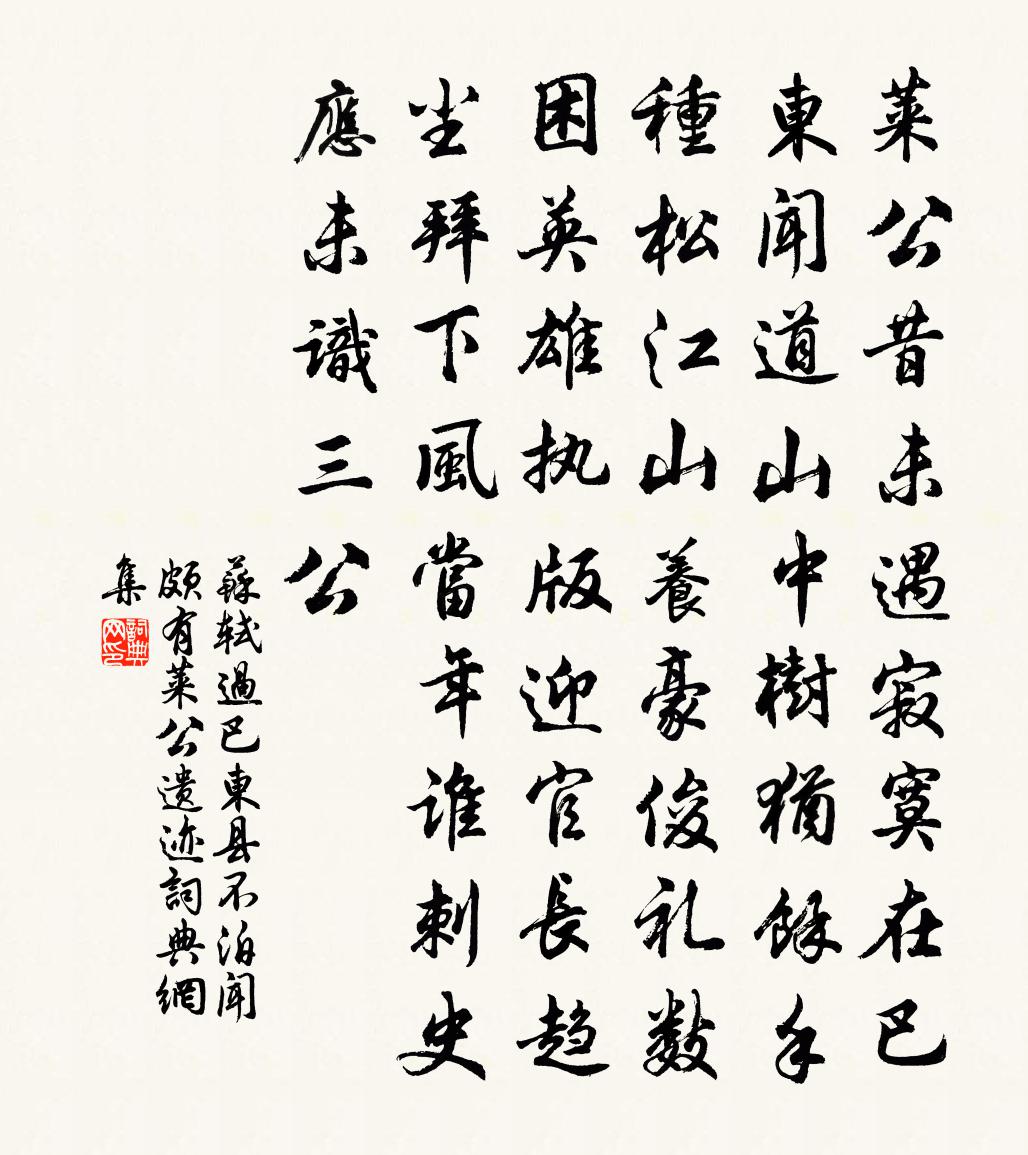 萊公昔未遇寂寞在巴
東聞道山中樹猶餘手
種松江山養豪俊礼數
困英雄执版迎官長趋
尘拜下風當年谁刺史
應未識三公
蘇軾過巴東县不泊聞
頗有萊公遗迹詞典網
集
詞典网印